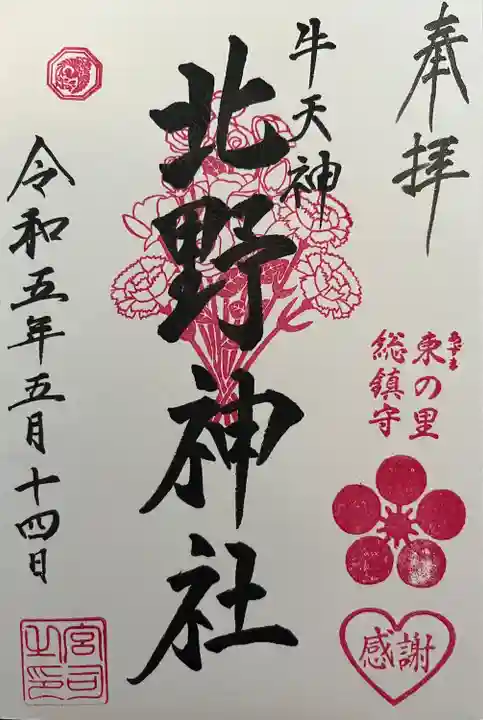 奉拝
牛天神
北野神社
令和五年五月十四日
東の里
あずま
総鎮守
感謝
宮司之印